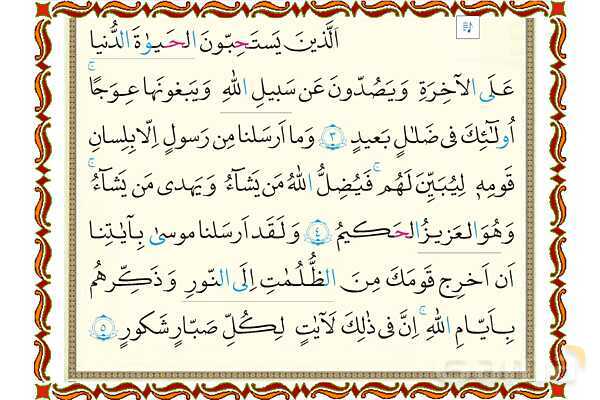 اَلَّذینَ یَستَحِبّونَ الحَیوٰةَ الدُّنیا
عَلَی الآخِرَةِ وَیَصُدّونَ عَن سَبیلِ اللّٰهِ وَیَبغونَها عِوَجًاۚ
اُولٰئِکَ فی ضَلٰلٍ بَعیدٍ ﴿٣﴾ وَما اَرسَلنا مِن رَسولٍ اِلّا بِلِسانِ
قَومِهٖ لِیُبَیِّنَ لَهُمۚ فَیُضِلُّ اللّٰهُ مَن یَشآءُ وَیَهدی مَن یَشآءُۚ
وَهُوَ العَزیزُ الحَکیمُ ﴿٤﴾ وَلَقَد اَرسَلنا موسیٰ بِآیٰتِنا
اَن اَخرِج قَومَکَ مِنَ الظُّلُمٰتِ اِلَی النّورِ وَذَکِّرهُم
بِاَیّامِ اللّٰهِۚ اِنَّ فی ذٰلِکَ لَآیٰتٍ لِکُلِّ صَبّارٍ شَکورٍ ﴿٥﴾